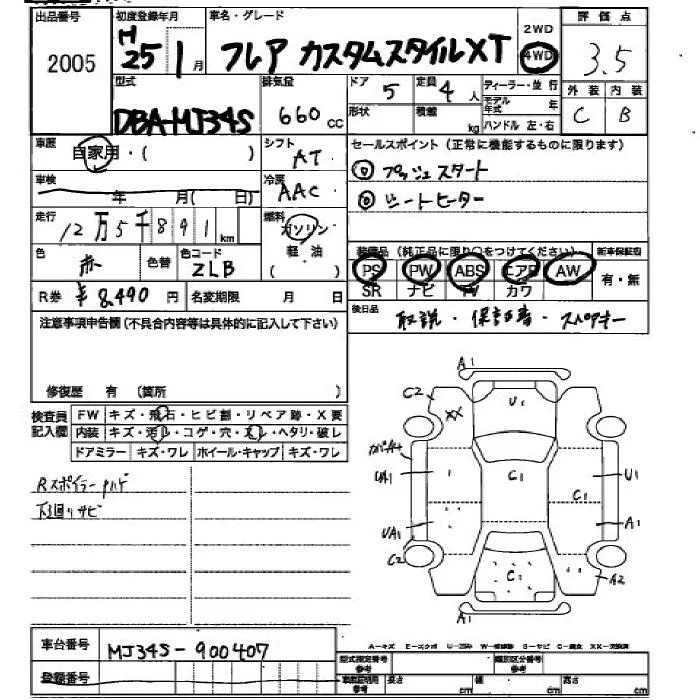 出品番号 初度登録年月 車名・グレード 2WD 評価点
2005 H25 1月 フレア カスタムスタイルXT 4WD 3.5
型式 排気量 ドア 5 定員 4人 ディーラー・並行 外装 内装
DBA-MJ34S 660cc 形状 積載 kg モデル年式 年 C B
ハンドル 左・右
車歴 自家用・( ) シフト AT セールスポイント(正常に機能するものに限ります)
車検 年 月( 日) 冷房 AAC ① プッシュスタート
② シートヒーター
走行 12万5千891km 燃料 ガソリン
軽油
( )
色 赤 色替 色コード ZLB 装備品(純正品に限り○をつけてください) 新車保証書
PS PW ABS エアB AW 有・無
SR ナビ TV カワ
R券 ¥8,490円 名変期限 月 日 後日品 取説・保証書・スペアキー
注意事項申告欄(不具合内容等は具体的に記入して下さい)
修復歴 有 (箇所 )
検査員記入欄 FW キズ・飛石・ヒビ割・リペア跡・X要
内装 キズ・汚れ・コゲ・穴・スレ・ヘタリ・破レ
ドアミラー キズ・ワレ ホイール・キャップ キズ・ワレ
Rスポイラーハゲ
下回りサビ
A1
C2 XX U1
UA1 1 C1 C1 U1
UA1 A1
C2 C1 A2
A1
車台番号 MJ34S-900407
登録番号
A-キズ E-エクボ U-凹み W-補修跡 S-サビ C-腐食 XX-交換済
型式指定番号 参考 類別区分番号 参考
車庫証明用 参考 長さ cm 幅 cm 高さ cm